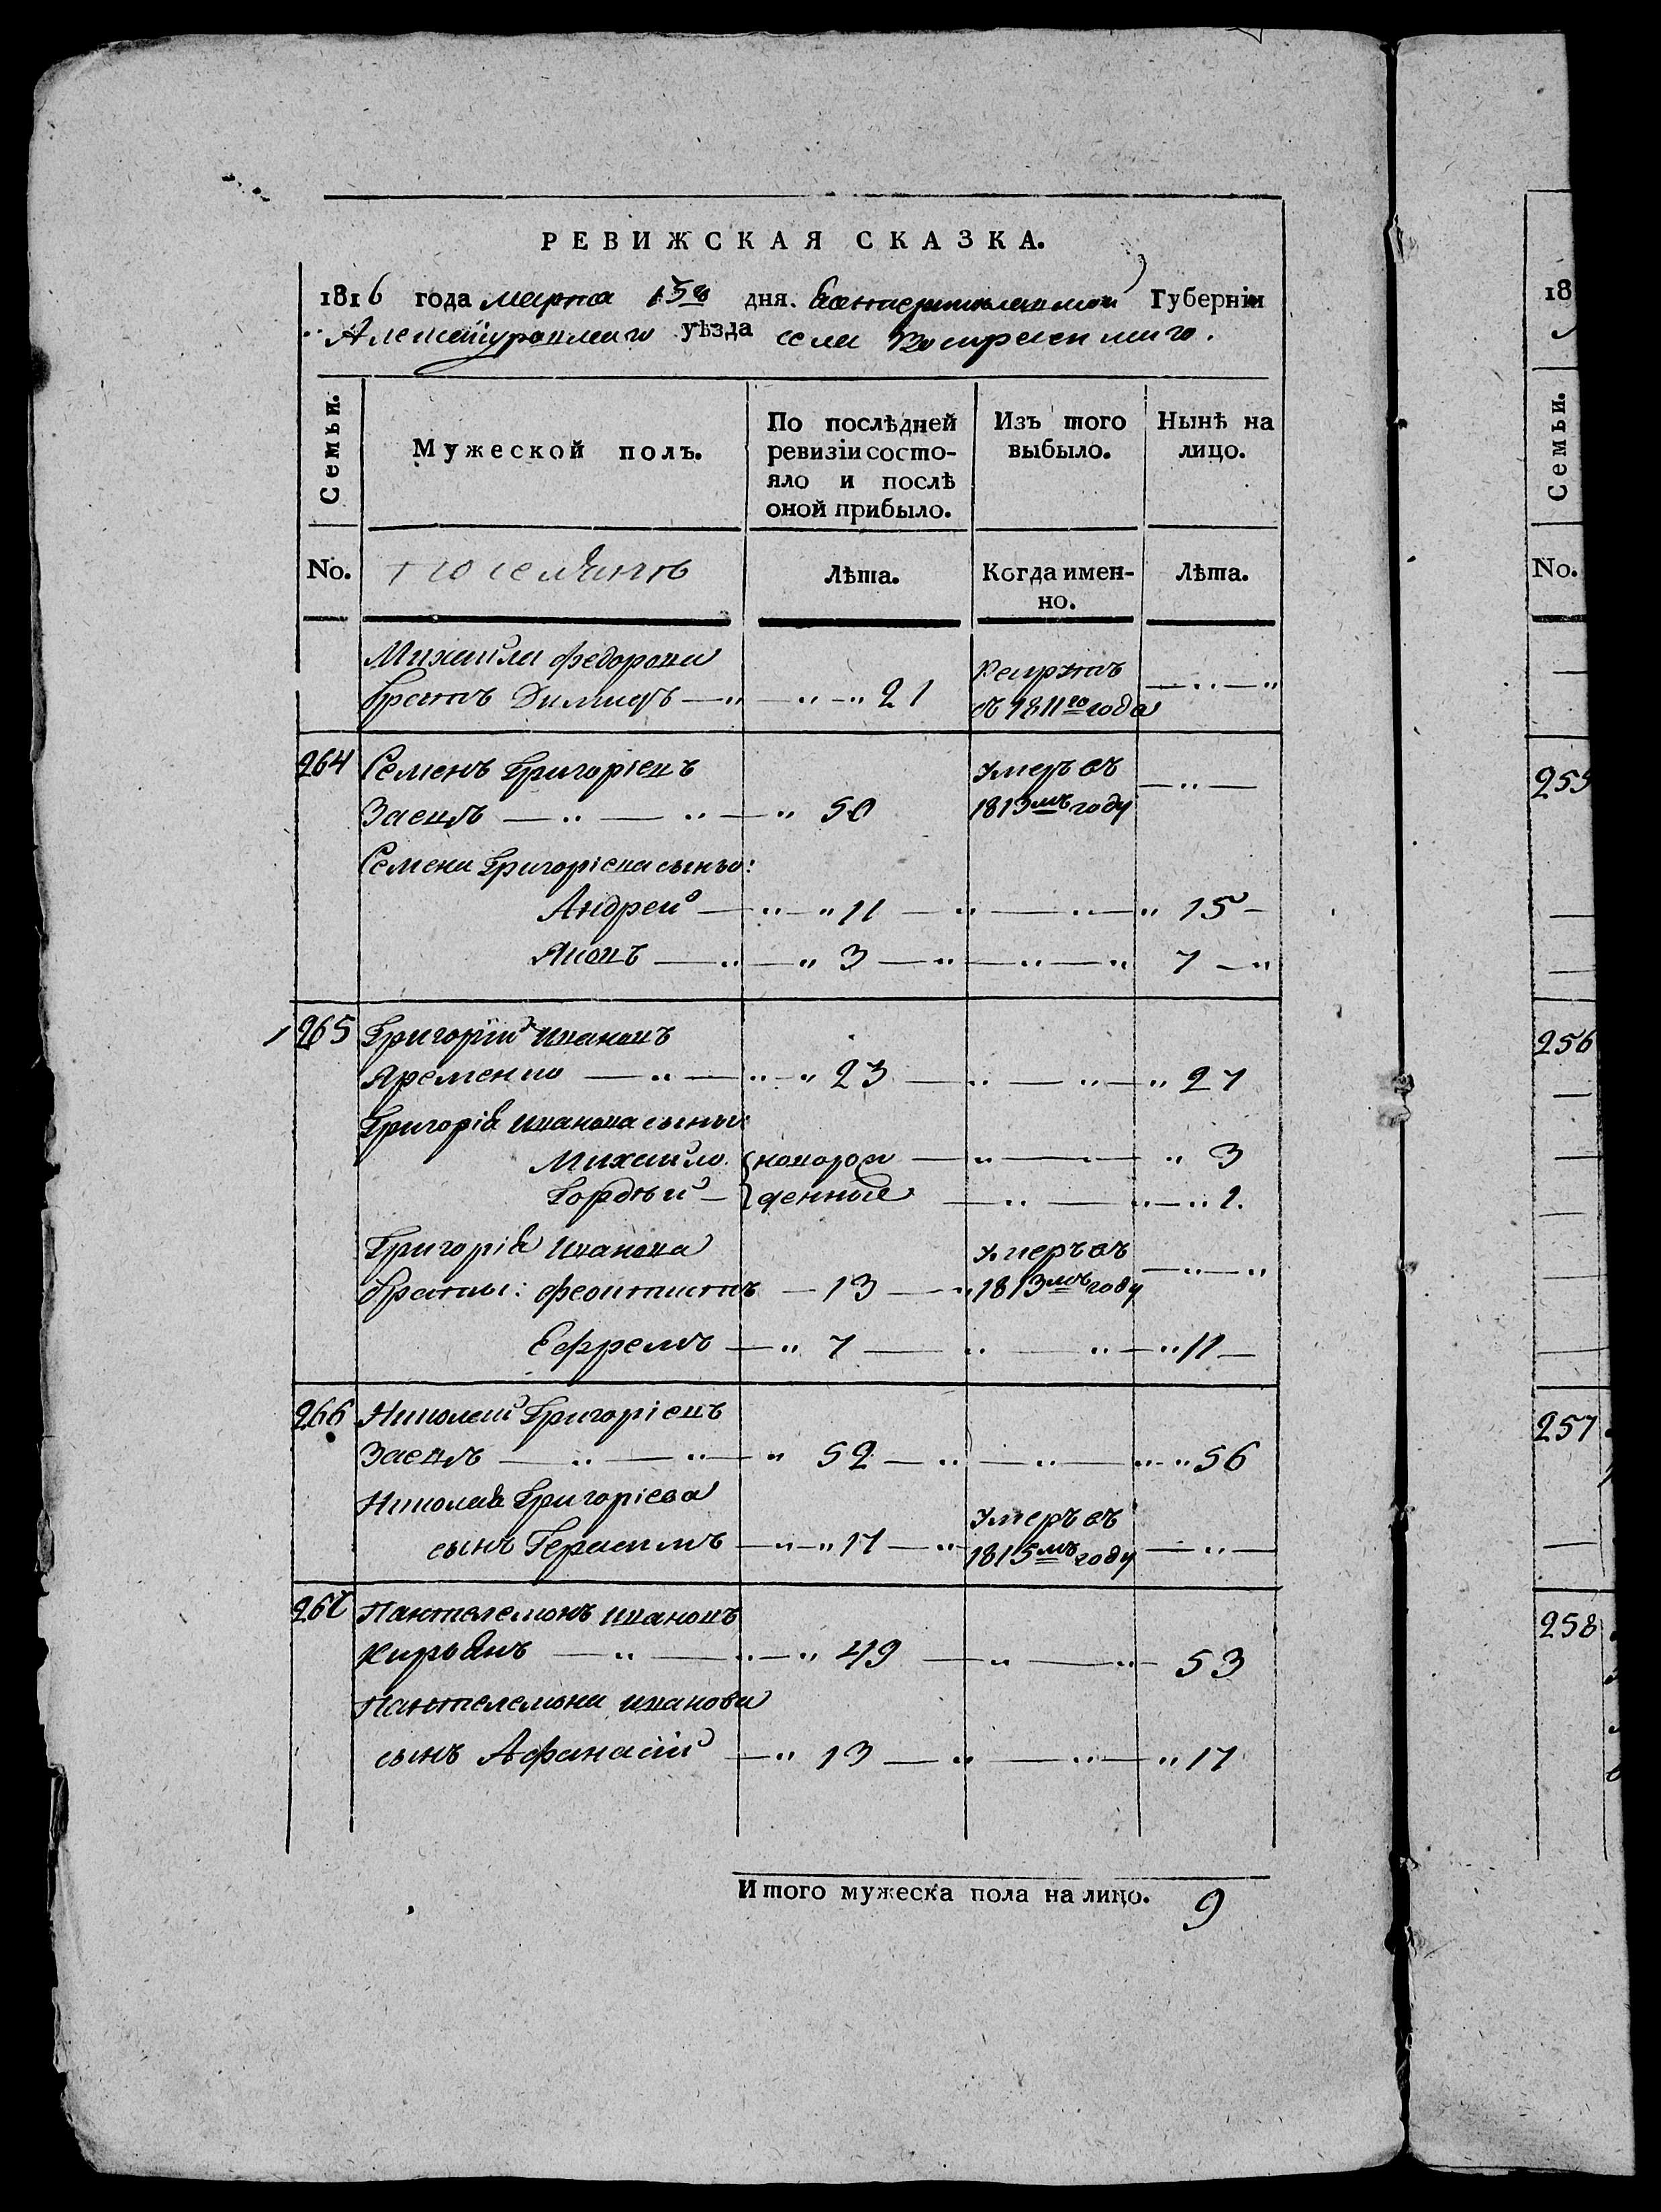 РЕВИЖСКАЯ СКАЗКА.
1816 года марта 15го дня. Екатеринославской Губерніи
Александровскаго уѣзда села Воскресенскаго.
Семьи.
Мужеской полъ.
По послѣдней ревизіи состояло и послѣ оной прибыло.
Изъ того выбыло.
Нынѣ на лицо.
No.
поселянъ
Лѣта.
Когда именно.
Лѣта.
Михайла Федорова
братъ — 21 Рекрутъ съ 1811го года
264 Семенъ Григорьевъ
Заецъ 50 умеръ въ 1813мъ году
Семена Григорьева сынъи:
Андрей 11 15
Яковъ 3 7
265 Григорій Ивановъ
Яременко 23 27
Григорія Иванова сыны
Михайло новорож 3
Гордѣй денные 1.
Григорія Иванова
братьи: Феоктистъ 13 умеръ въ 1813мъ году
Ефремъ 7 11
266 Николай Григорьевъ
Заецъ 52 56
Николая Григорьева
сынъ Герасимъ 17 Умеръ въ 1815мъ году
267 Пантелемонъ Ивановъ
Кирьянъ 49 53
Пантелемона Иванова
сынъ Афанасій 13 17
Итого мужеска пола на лицо. 9
18
Семьи.
No.
255
256
257
258